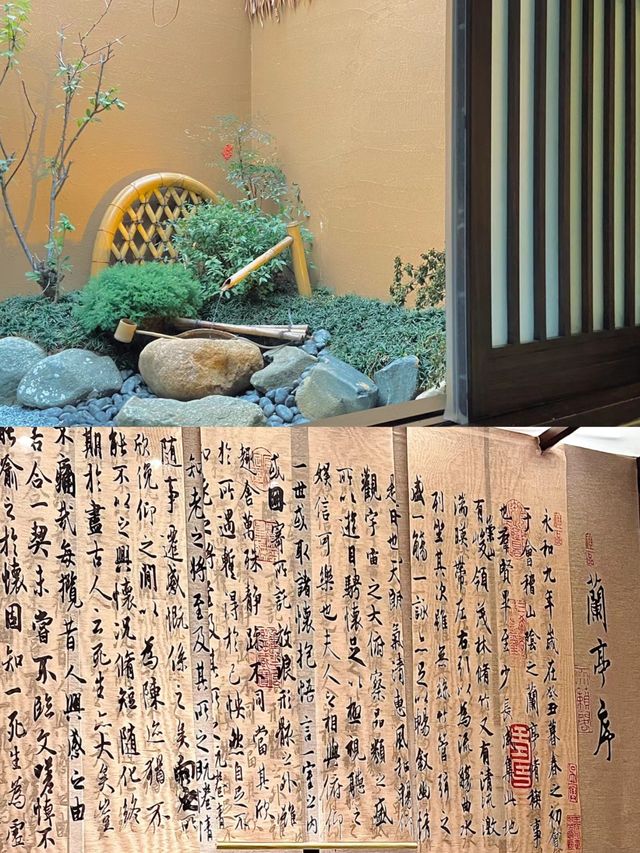 蘭亭序
永和九年歲在癸丑暮春之初會
于會稽山陰之蘭亭脩稧事
也羣賢畢至少長咸集此地
有峻領茂林脩竹又有清流激
湍暎帶左右引以為流觴曲水
列坐其次雖無絲竹管弦之
盛一觴一詠亦足以暢敘幽情
是日也天朗氣清惠風和暢仰
觀宇宙之大俯察品類之盛
所以遊目騁懷足以極視聽之
娛信可樂也夫人之相與俯仰
一世或取諸懷抱悟言一室之內
或因寄所託放浪形骸之外雖
趣舍萬殊靜躁不同當其欣
於所遇暫得於己怏然自足不
知老之將至及其所之既惓情
隨事遷感慨係之矣向之所
欣俛仰之閒以為陳迹猶不
能不以之興懷況脩短隨化終
期於盡古人云死生亦大矣豈
不痛哉每攬昔人興感之由
若合一契未嘗不臨文嗟悼不
能喻之於懷固知一死生為虛